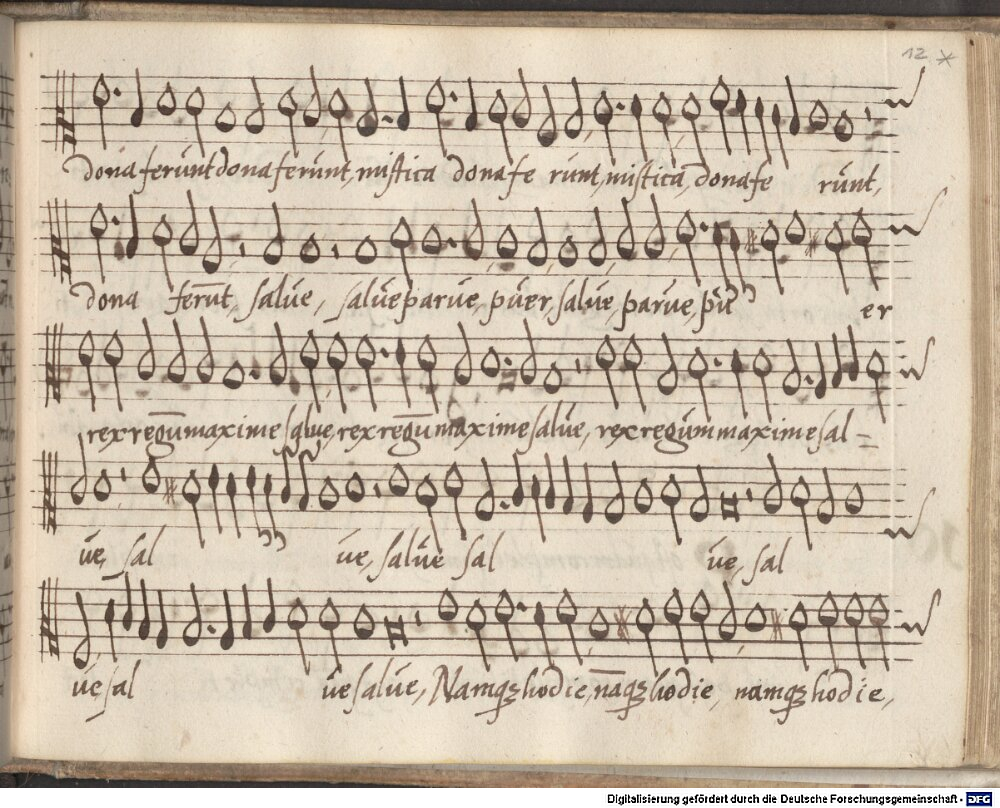 12 *
dona ferūnt dona ferūnt, mistica dona fe rūnt, mistica, dona fe rūnt,
dona ferūt, salūe, salūe parūe, pūer, salūe, parūe, pū er
rex regūmaxime salūe, rex regūmaxime salūe, rex regūmmaxime sal =
ūe, sal ūe, salūe sal ūe, sal
ūe sal ūe salūe, Namqȝ hodie, nāqȝ hodie, namqȝ hodie,
Digitalisierung gefördert durch die Deutsche Forschungsgemeinschaft - DFG